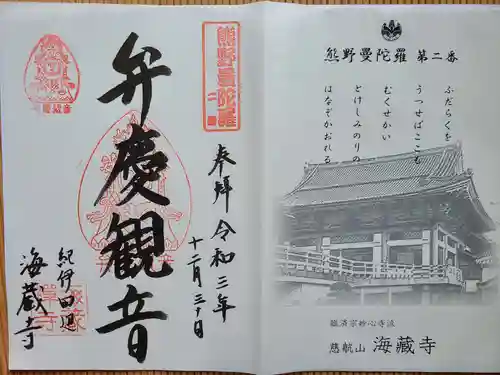 熊野曼陀羅 第二番
ふだらくを
うつせばこゝも
むくせかい
とけしみのりの
はなぞかおれる
臨済宗妙心寺派
慈航山 海蔵寺
熊野曼陀羅
二
奉拝 令和三年
十二月三十日
弁慶観音
紀伊田辺
海蔵寺